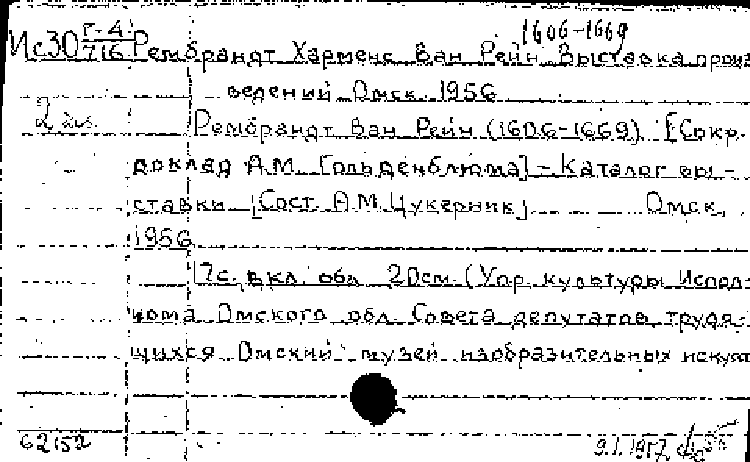 1606-1669
Ис30 Г-4/716 Рембрандт Харменс Ван Рейн Выставка произ
ведений Омск 1956
2 экз. Рембрандт Ван Рейн (1606-1669) [Сокр.
доклад А.М. Гольденблюма] - Каталог вы-
ставки [Сост. А.М. Цукерник] Омск,
1956
17с. вкл. обл 20см. (Упр. культуры Испол-
кома Омского обл. Совета депутатов трудя-
щихся Омский музей изобразительных искусст
62152 9.I.1957